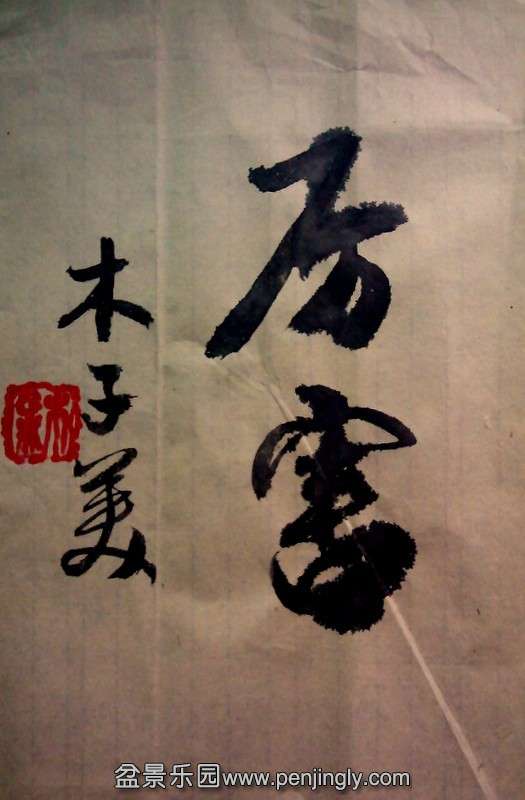 厉害
木子美
盆景乐园www.penjingly.com